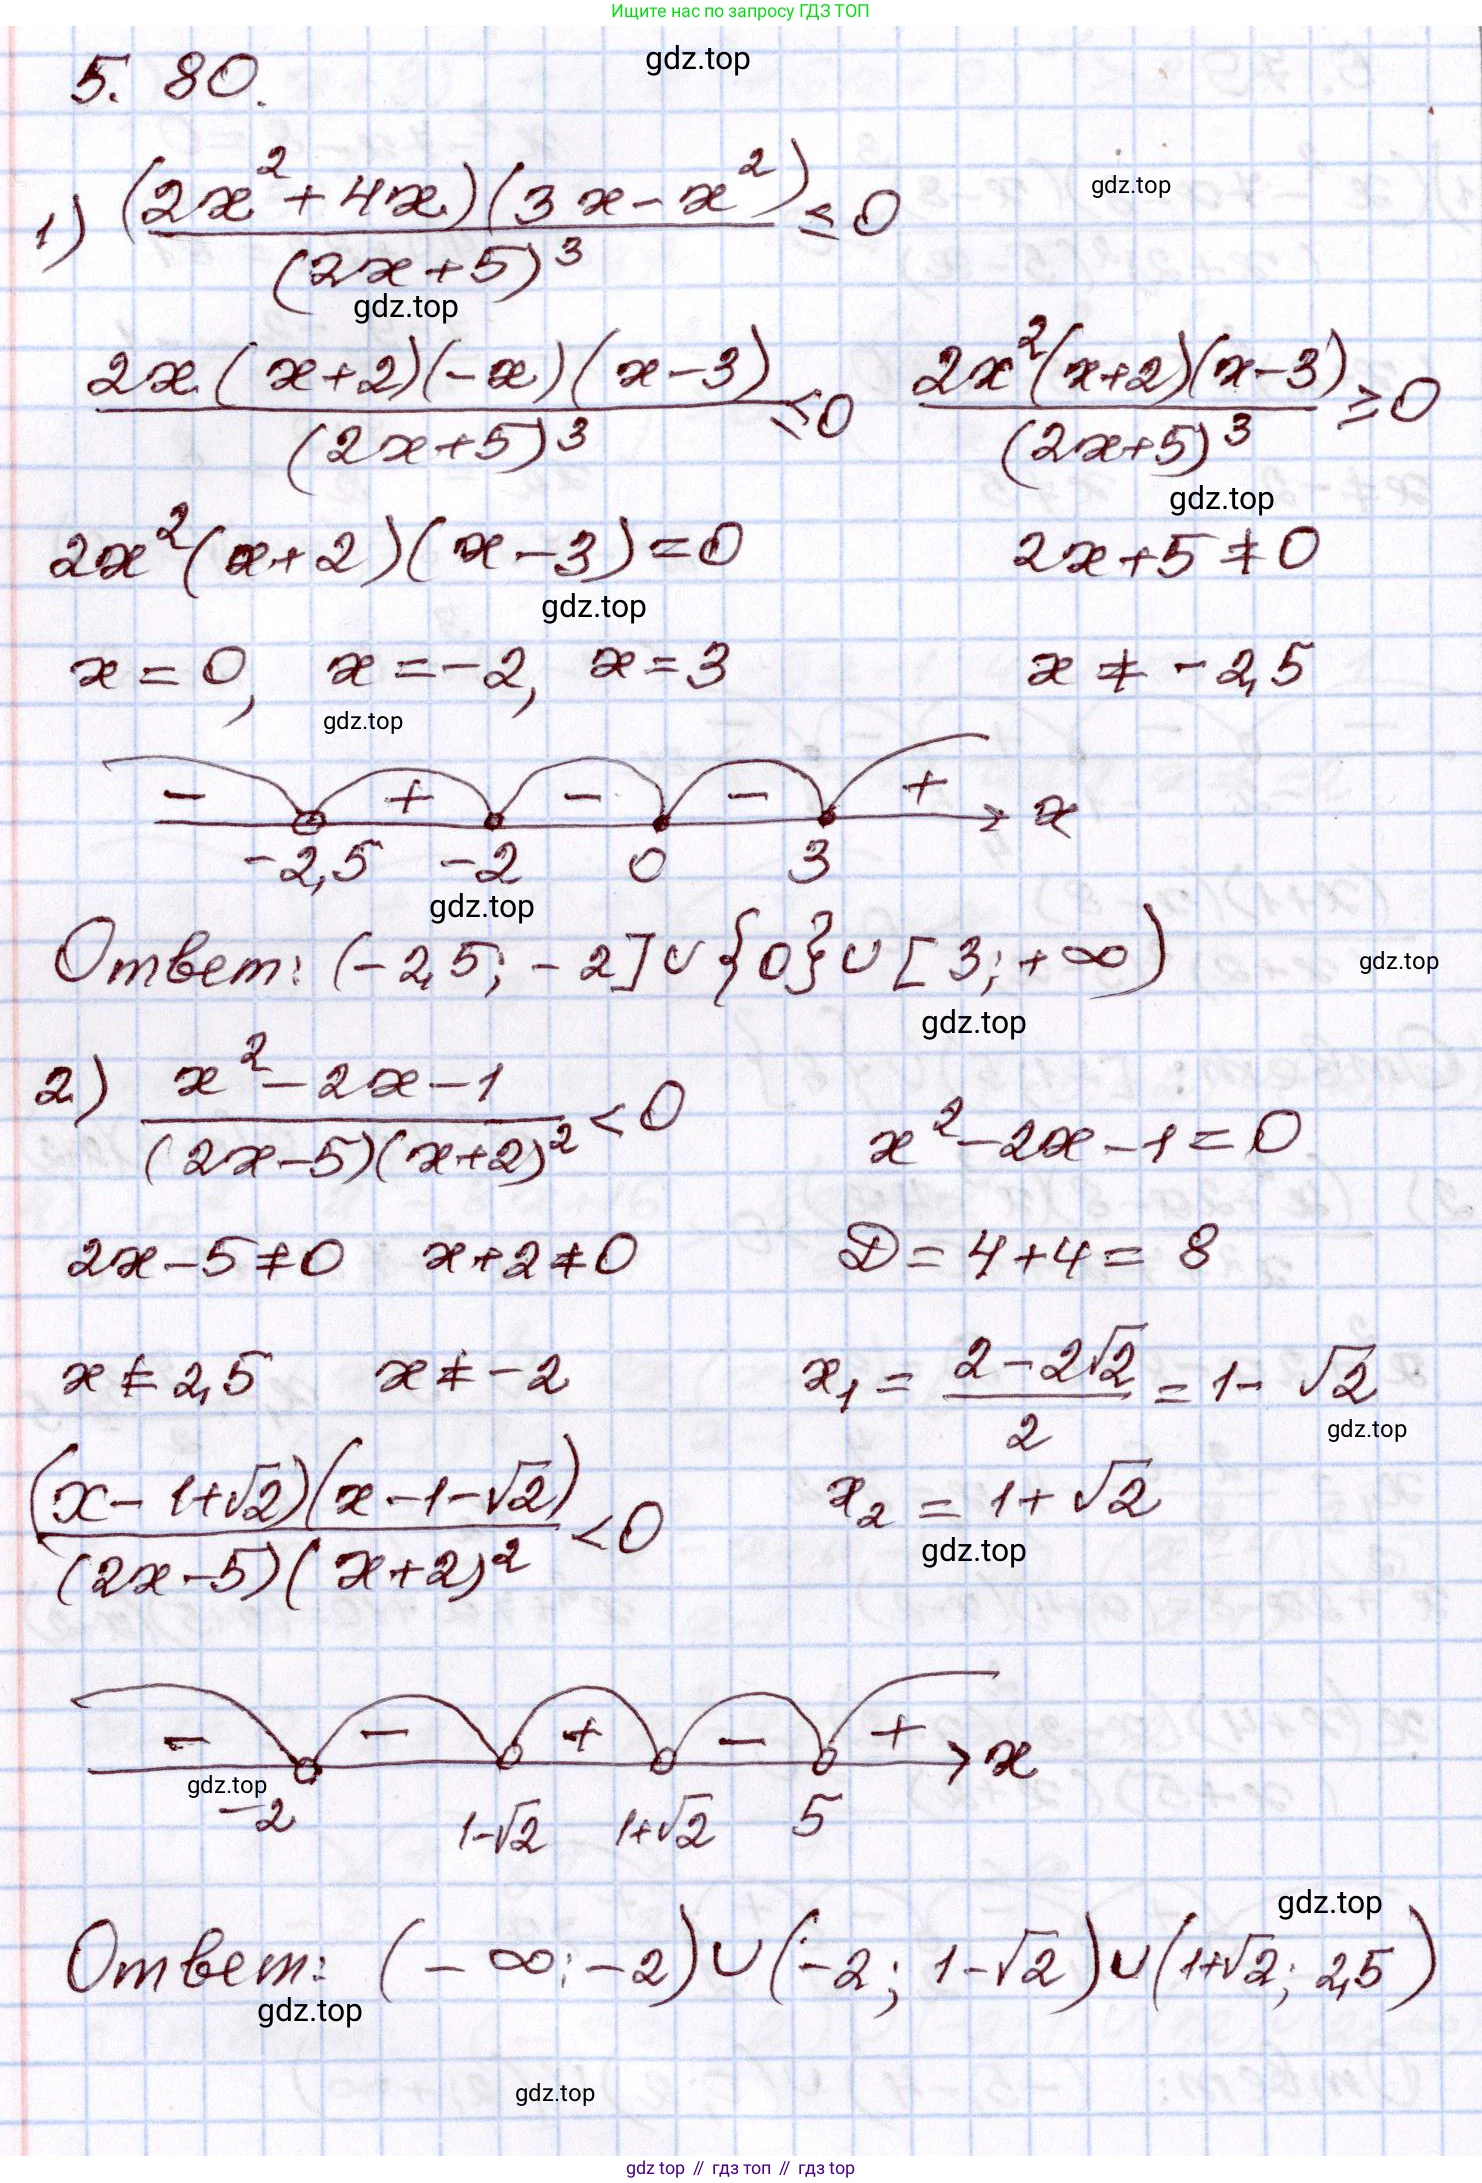 Ищите нас по запросу ГДЗ ТОП
5.80.
gdz.top
1) (2x² + 4x)(3x - x²) / (2x+5)³ ≤ 0
gdz.top
gdz.top
2x(x+2)(-x)(x-3) / (2x+5)³ ≤ 0   2x²(x+2)(x-3) / (2x+5)³ ≥ 0
gdz.top
2x²(x+2)(x-3) = 0   2x+5 ≠ 0
gdz.top
x = 0, x = -2, x = 3   x ≠ -2,5
gdz.top
- + - - + x
-2,5 -2 0 3
gdz.top
Ответ: (-2,5; -2] ∪ {0} ∪ [3; +∞)
gdz.top
gdz.top
2) x² - 2x - 1 / (2x-5)(x+2)² < 0   x² - 2x - 1 = 0
2x - 5 ≠ 0   x+2 ≠ 0   D = 4+4 = 8
x ≠ 2,5   x ≠ -2   x₁ = (2 - 2√2) / 2 = 1 - √2
gdz.top
(x - 1+√2)(x - 1 - √2) / (2x-5)(x+2)² < 0   x₂ = 1 + √2
gdz.top
- - + - + x
gdz.top
-2 1-√2 1+√2 5
gdz.top
Ответ: (-∞; -2) ∪ (-2; 1-√2) ∪ (1+√2; 2,5)
gdz.top
gdz.top
gdz top // гдз топ // гдз top